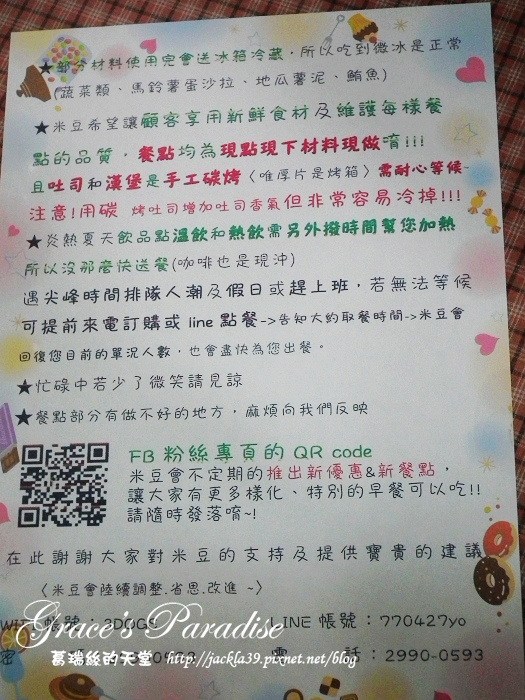 ★部分材料使用完會送冰箱冷藏，所以吃到微冰是正常
(蔬菜類、馬鈴薯蛋沙拉、地瓜薯泥、鮪魚)
★米豆希望讓顧客享用新鮮食材及維護每樣餐
點的品質，餐點均為現點現下材料現做唷!!!
且吐司和漢堡是手工碳烤〈唯厚片是烤箱〉需耐心等候~
注意!用碳 烤吐司增加吐司香氣但非常容易冷掉!!!
★炎熱夏天飲品點溫飲和熱飲需另外撥時間幫您加熱
所以沒那麼快送餐(咖啡也是現沖)
遇尖峰時間排隊人潮及假日或趕上班，若無法等候
可提前來電訂購或 line 點餐->告知大約取餐時間->米豆會
回復您目前的單況人數，也會盡快為您出餐。
★忙碌中若少了微笑請見諒
★餐點部分有做不好的地方，麻煩向我們反映
FB 粉絲專頁的 QR code
米豆會不定期的推出新優惠&新餐點，
讓大家有更多樣化、特別的早餐可以吃!!
請隨時發落唷~!
在此謝謝大家對米豆的支持及提供寶貴的建議
〈米豆會陸續調整.省思.改進 ~〉
帳號： LINE 帳號：770427yo
密 話：2990-0593
Grace's Paradise
葛瑞絲的天堂 http://jackla39.pixnet.net/blog